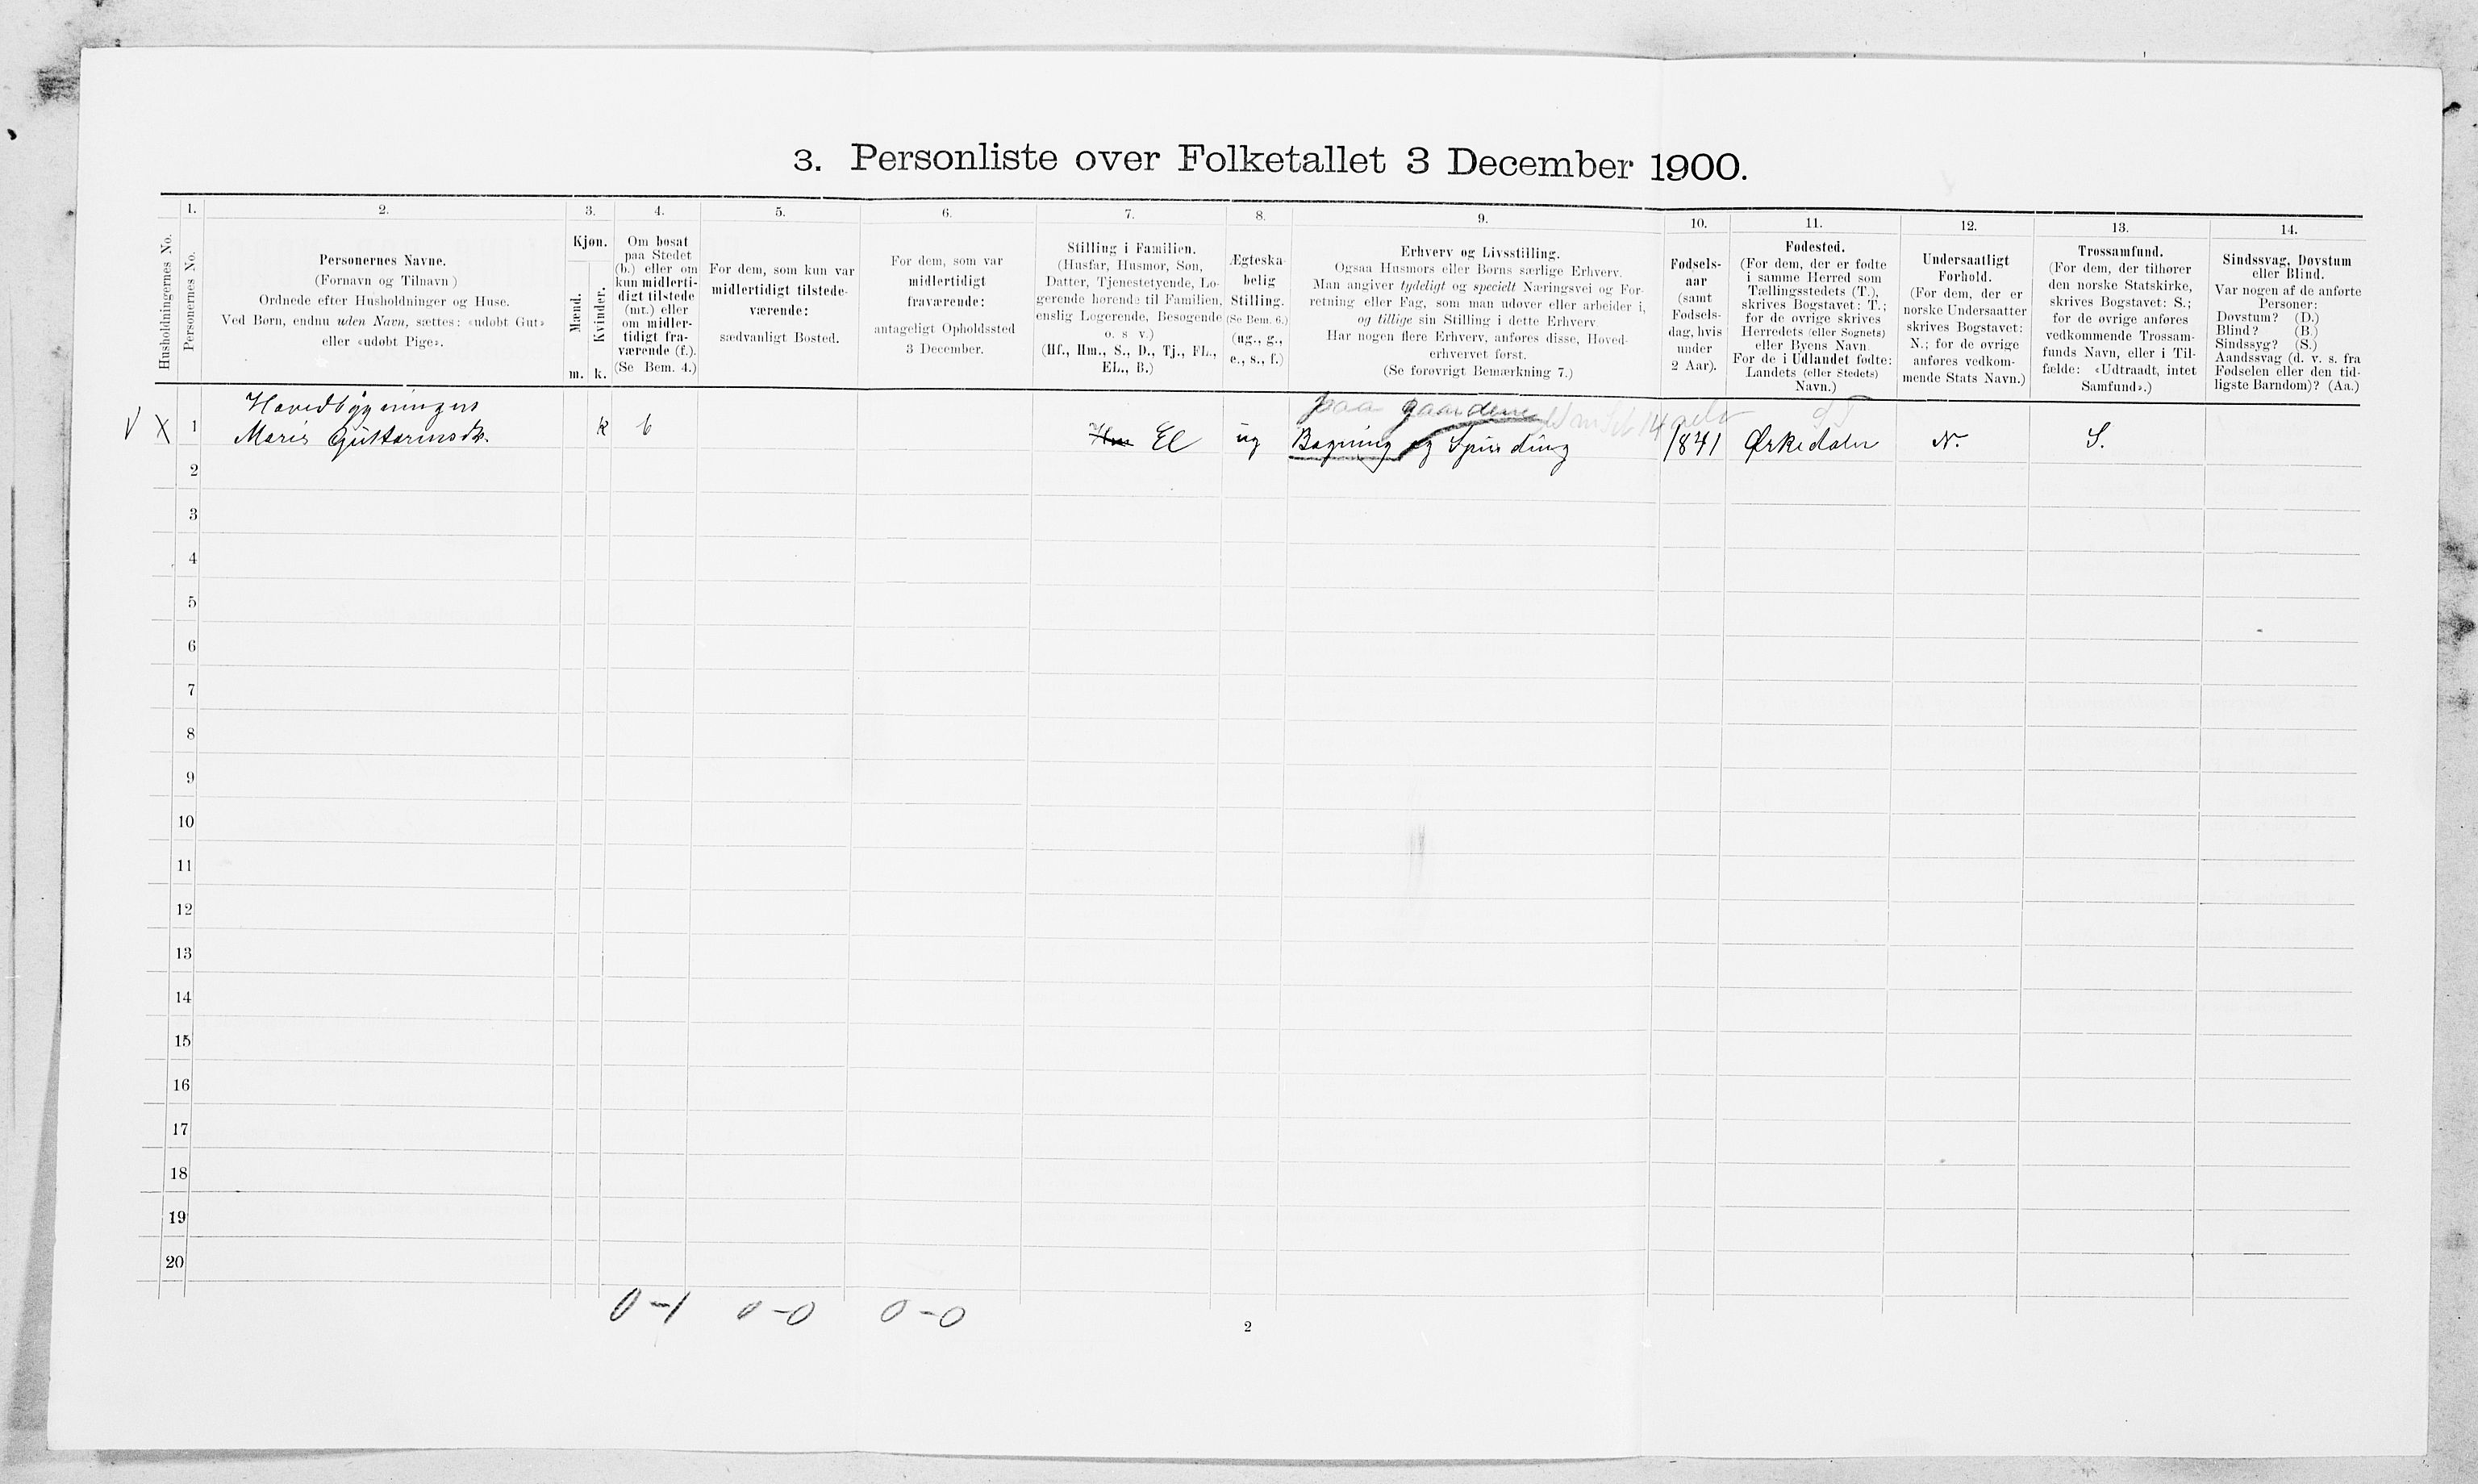 3. Personliste over Folketallet 3 December 1900.
Husholdningernes No.
1.
Personernes No.
2.
Personernes Navne.
(Fornavn og Tilnavn)
Ordnede efter Husholdninger og Huse.
Ved Børn, endnu uden Navn, sættes: «udøbt Gut»
eller «udøbt Pige».
3.
Kjøn.
Mænd.
Kvinder.
m. k.
4.
Om bosat
paa Stedet
(b.) eller om
kun midlerti-
digt tilstede
(mt.) eller
om midler-
tidigt fra-
værende (f.).
(Se Bem. 4.)
5.
For dem, som kun var
midlertidigt tilstede-
værende:
sædvanligt Bosted.
6.
For dem, som var
midlertidigt
fraværende:
antageligt Opholdssted
3 December.
7.
Stilling i Familien.
(Husfar, Husmor, Søn,
Datter, Tjenestetyende, Lo-
gerende hørende til Familien,
enslig Logerende, Besøgende
o. s v.)
(Hf., Hm., S., D., Tj., FL.,
EL., B.)
8.
Ægteska-
belig
Stilling.
(Se Bem. 6.)
(ug., g.,
e., s., f.)
9.
Erhverv og Livsstilling.
Ogsaa Husmors eller Børns særlige Erhverv.
Man angiver tydeligt og specielt Næringsvei og For-
retning eller Fag, som man udøver eller arbeider i,
og tillige sin Stilling i dette Erhverv
Har nogen flere Erhverv, anføres disse, Hoved-
erhvervet først.
(Se forøvrigt Bemærkning 7.)
10.
Fødsels-
aar
(samt
Fødsels-
dag, hvis
under
2 Aar).
11.
Fødested.
(For dem, der er fødte
i samme Herred som
Tællingsstedets (T.),
skrives Bogstavet: T.;
for de øvrige skrives
Herredets (eller Sognets)
eller Byens Navn
For de i Udlandet fødte:
Landets (eller Stedets)
Navn.)
12.
Undersaatligt
Forhold.
(For dem, der er
norske Undersaatter
skrives Bogstavet:
N.; for de øvrige
anføres vedkom-
mende Stats Navn.)
13.
Trossamfund.
(For dem, der tilhører
den norske Statskirke,
skrives Bogstavet: S.;
for de øvrige anføres
vedkommende Trossam-
funds Navn, eller i Til-
fælde: «Udtraadt, intet
Samfund».)
14.
Sindssvag, Døvstum
eller Blind.
Var nogen af de anførte
Personer:
Døvstum? (D.)
Blind? (B.)
Sindssyg? (S.)
Aandssvag (d. v. s. fra
Fødselen eller den tid-
ligste Barndom)? (Aa.)
Hovedbygningen
paa gaardene
X 1 k b El ug Bagning og Spinding 1841 Ørkedalen N. S.
2
3
4
5
6
7
8
9
10
11
12
13
14
15
16
17
18
19
20
0-1 0-0 0-0
2